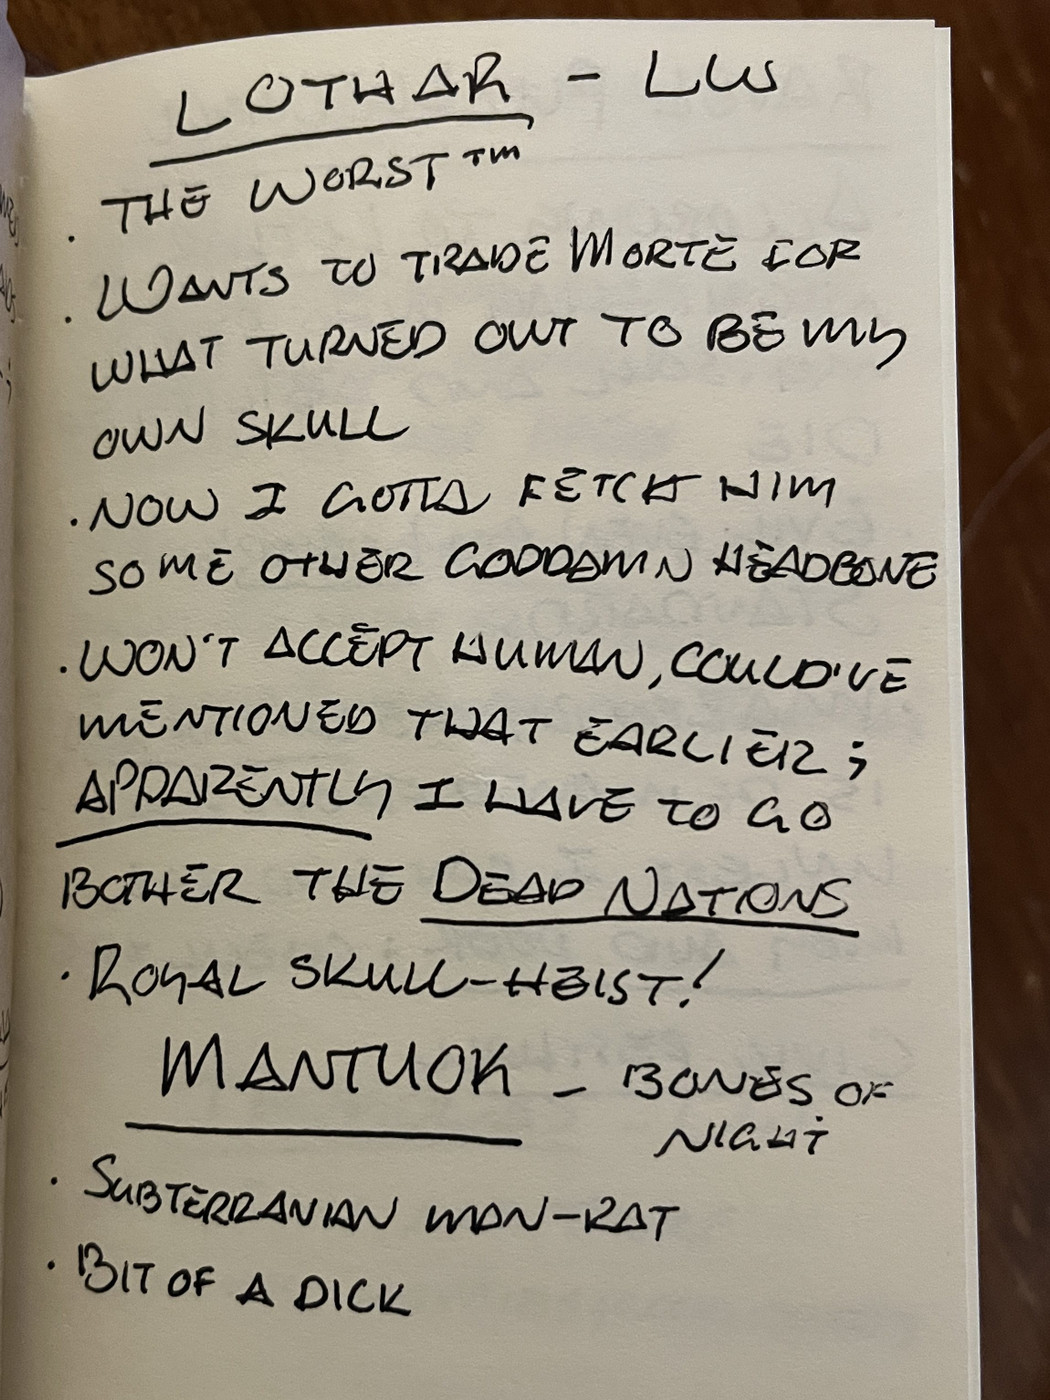 LOTHAR - LW
· THE WORST™
· WANTS TO TRADE MORTE FOR
WHAT TURNED OUT TO BE MY
OWN SKULL
· NOW I GOTTA FETCH HIM
SOME OTHER GODDAMN HEADBONE
· WON'T ACCEPT HUMAN, COULD'VE
MENTIONED THAT EARLIER;
APPARENTLY I HAVE TO GO
BOTHER THE DEAD NATIONS
· ROYAL SKULL-HEIST!
MANTUOK - BONES OF
NIGHT
· SUBTERRANIAN MAN-RAT
· BIT OF A DICK